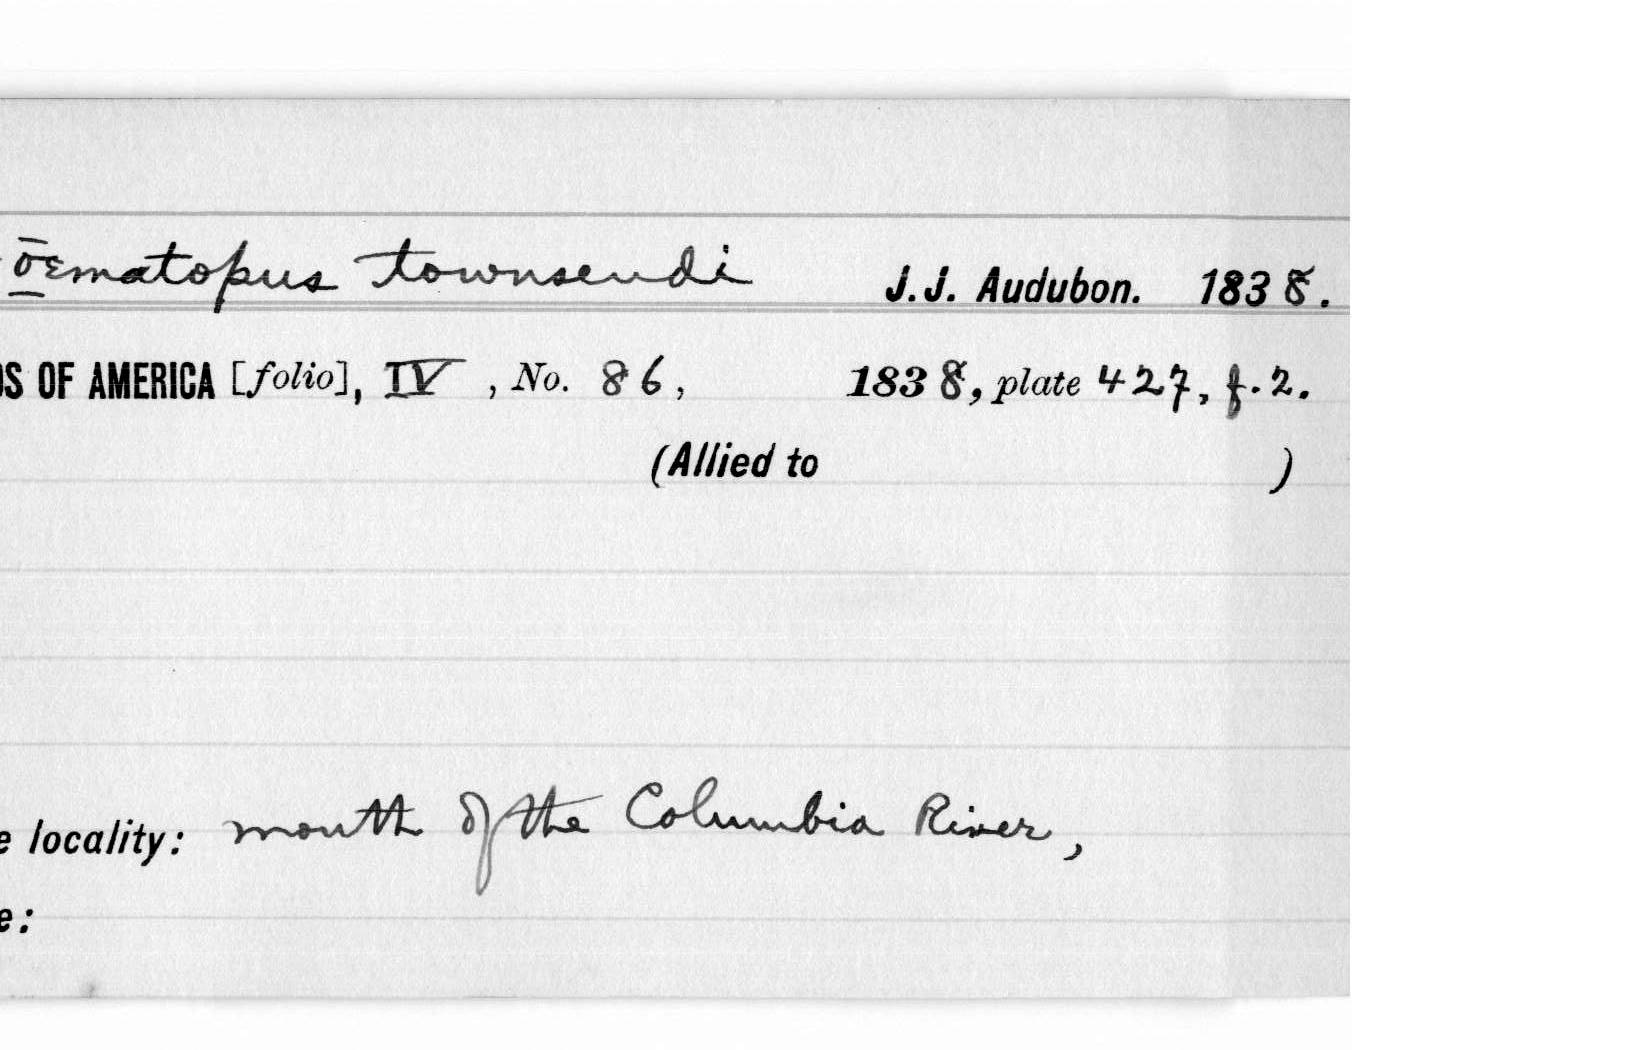 ōematopus townsendi J.J. Audubon. 1838.
DS OF AMERICA [folio], IV , No. 86, 1838, plate 427, f.2.
(Allied to )
e locality: mouth of the Columbia River,
e: